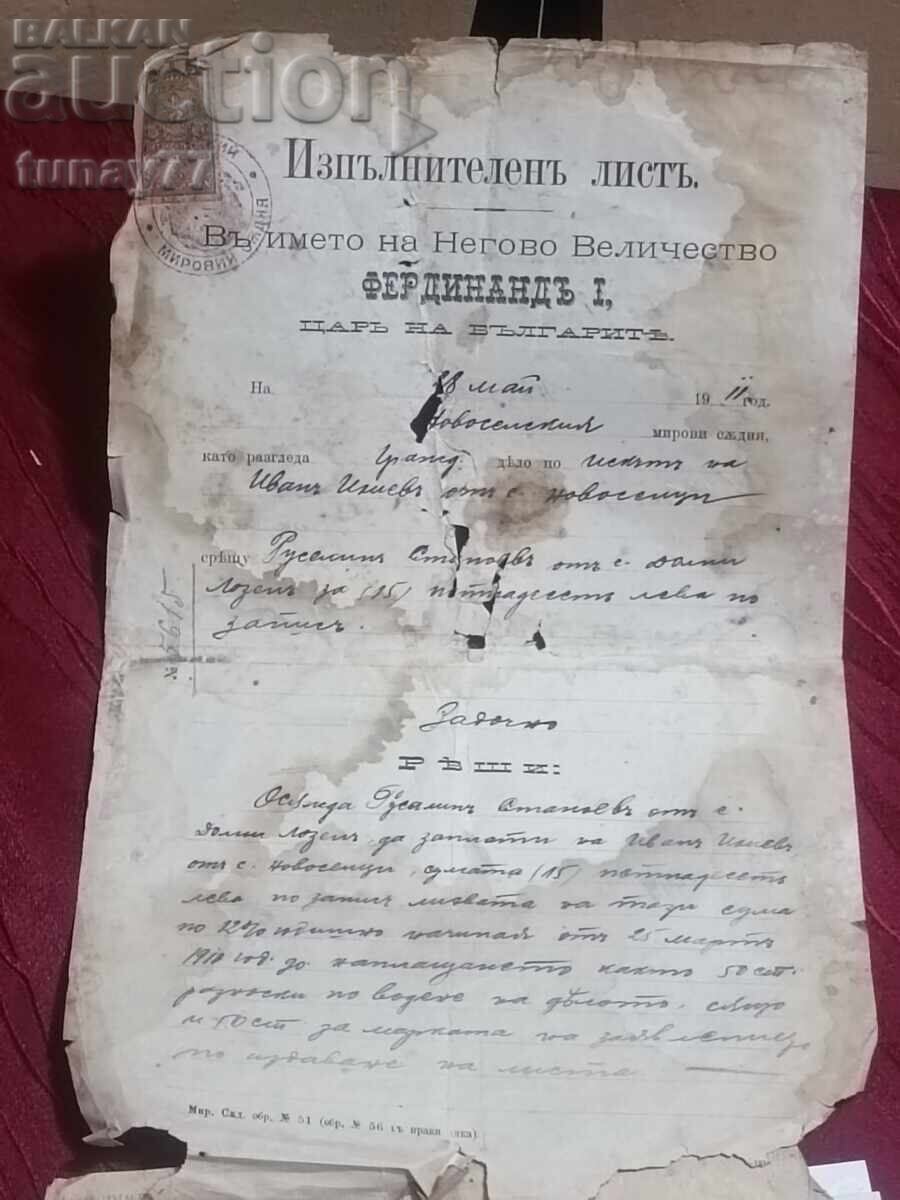 BALKAN
auction
tunay77
МИРОВИЙ СѪДИЯ
Изпълнителенъ листъ.
Въ името на Негово Величество
ФЕРДИНАНДЪ I,
ЦАРЬ НА БЪЛГАРИТѢ.
На 28 май 1911 год.
Новоселския мирови сѫдия,
като разгледа гражд. дѣло по искътъ на
Иванъ Илиевъ отъ с. Новоселци
срѣщу Русалинъ Станоевъ отъ с. Долни
Лозенъ за (15) петнадесетъ лева по
записъ.
№ 5615
Задочно
РѢШИ:
Осѫжда Русалинъ Станоевъ отъ с.
Долни Лозенъ, да заплати на Иванъ Илиевъ
отъ с. Новоселци, сумата (15) петнадесетъ
лева по записъ лихвата на тази сума
по 12% годишно начиная отъ 25 мартъ
1910 год. до изплащането както 50 ст.
разноски по водене на дѣлото, сѫщо
и 50 ст. за марката на заявлението
по издаване на листа
Мир. Сѫд. обр. № 51 (обр. № 56 съ праки